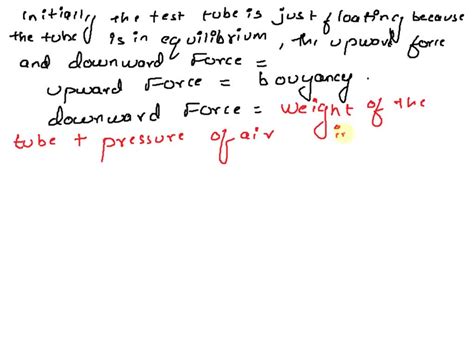 initially the test tube is just floating because
the tube is in equilibrium, the upward force
and downward Force =
upward Force = bouyancy.
downward Force = weight of the
tube + pressure of air in